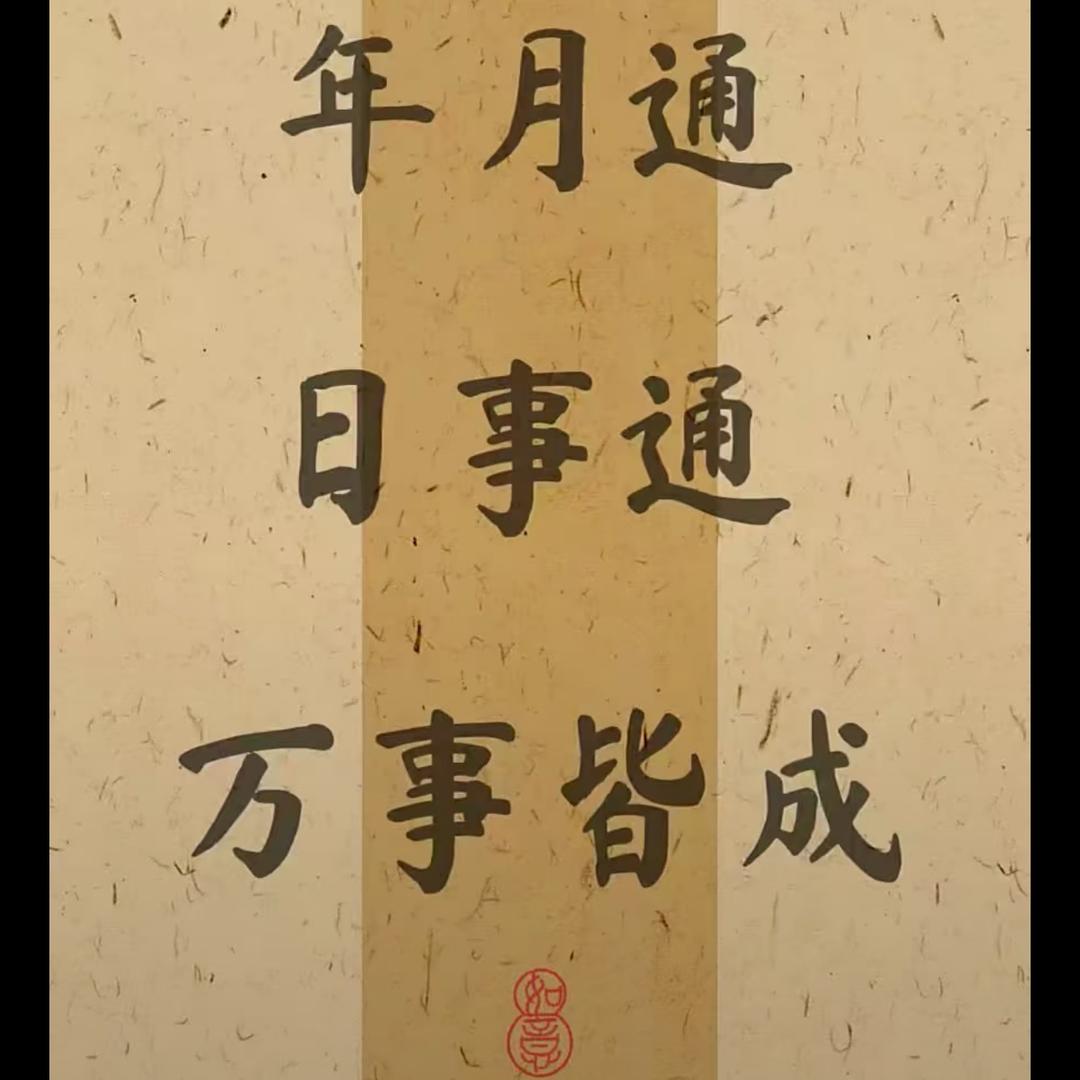 年月通
日事通
万事皆成
如意